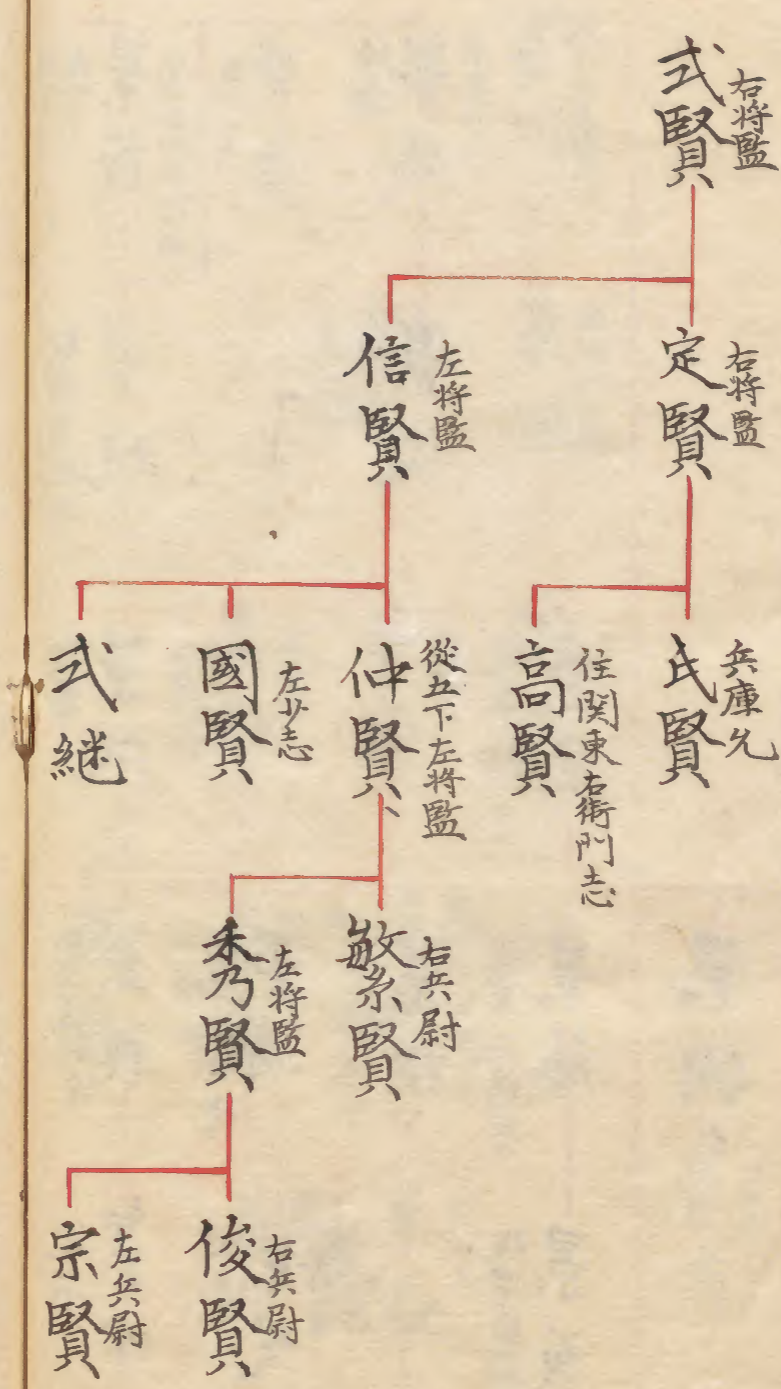 式賢
右将監
定賢
右将監
信賢
左将監
氏賢
兵庫允
高賢
住関東右衛門志
仲賢
従五下左将監
國賢
左少志
式継
繁賢
右兵尉
秀賢
左将監
俊賢
右兵尉
宗賢
左兵尉